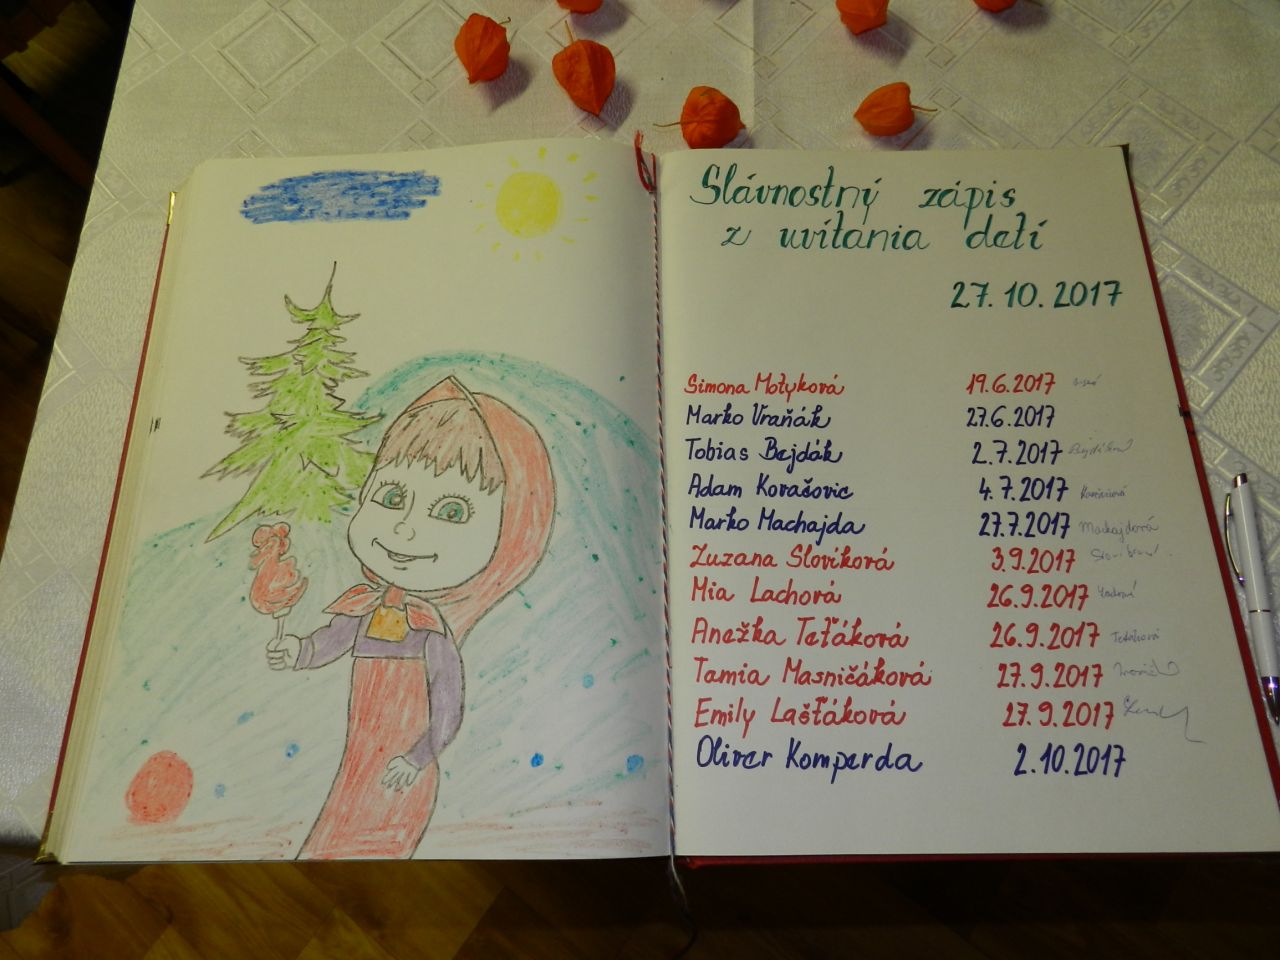 Slávnostný zápis
z uvítania detí
27.10.2017
Simona Motyková 19.6.2017
Marko Vraňák 27.6.2017
Tobias Bejdák 2.7.2017
Adam Kovašovic 4.7.2017
Marko Machajda 27.7.2017 Machajdová
Zuzana Slovíková 3.9.2017
Mia Lachová 26.9.2017
Anežka Teťáková 26.9.2017 Teťáková
Tamia Masničáková 27.9.2017
Emily Lašťáková 27.9.2017
Oliver Komperda 2.10.2017